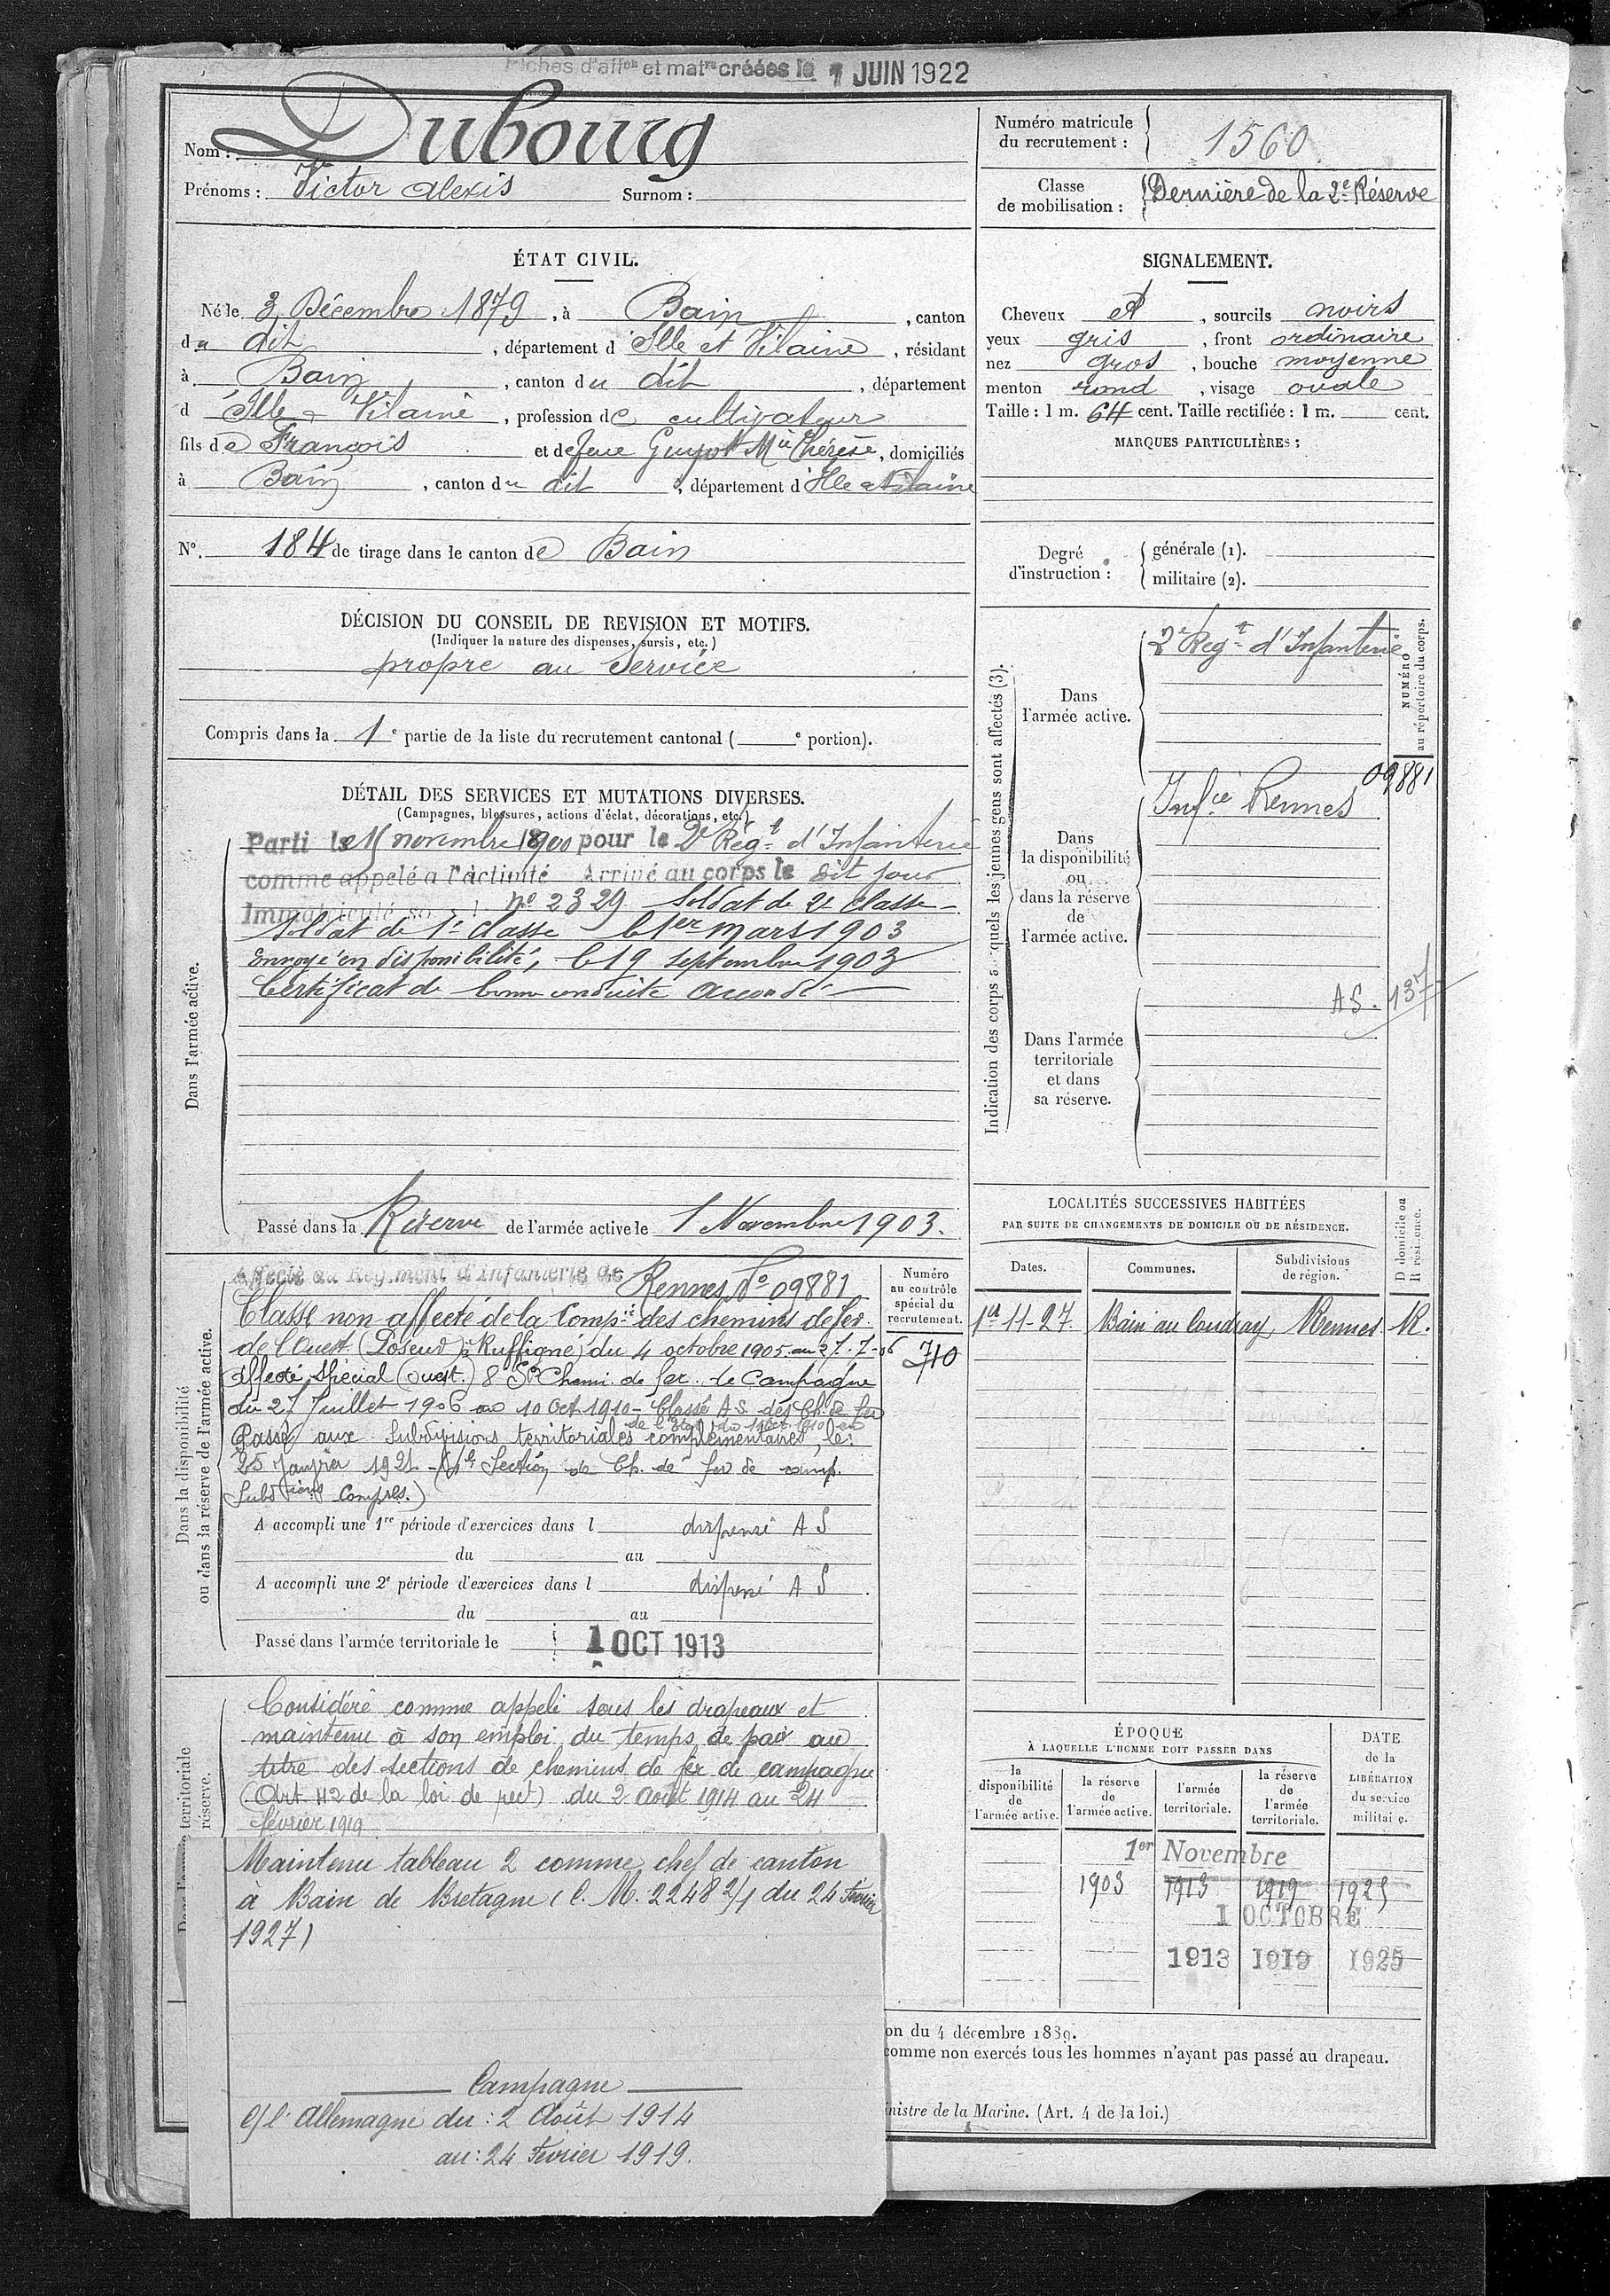 Fiches d'affon et matre créées le 1 JUIN 1922
Nom : Dubourg
Prénoms : Victor Alexis Surnom :
Numéro matricule du recrutement : 1560
Classe de mobilisation : Dernière de la 2e Réserve
ÉTAT CIVIL.
Né le 3 Décembre 1879, à Bain, canton
du dit, département d'Ille et Vilaine, résidant
à Bain, canton du dit, département
d'Ille & Vilaine, profession de cultivateur
fils de François et de feue Guyot Mie Thérèse, domiciliés
à Bain, canton du dit, département d'Ille et Vilaine
No. 184 de tirage dans le canton de Bain
DÉCISION DU CONSEIL DE REVISION ET MOTIFS.
(Indiquer la nature des dispenses, sursis, etc.)
propre au Service
Compris dans la 1e partie de la liste du recrutement cantonal ( e portion).
DÉTAIL DES SERVICES ET MUTATIONS DIVERSES.
(Campagnes, blessures, actions d'éclat, décorations, etc.)
Dans l'armée active.
Parti le 15 novembre 1900 pour le 2e Régt d'Infanterie
comme appelé a l'activité Arrivé au corps le dit jour
Immatriculé so no 2329 Soldat de 2e classe
Soldat de 1e classe le 1er mars 1903
Envoyé en disponibilité, le 19 septembre 1903
Certificat de bonne conduite accordé
Passé dans la Réserve de l'armée active le 1 Novembre 1903.
Dans la disponibilité ou dans la réserve de l'armée active.
Affecté au Régiment d'Infanterie de Rennes No 09881
Classé non affecté de la Compie des chemins de fer
de l'Ouest (Poseur à Ruffigné) du 4 octobre 1905 au 27-7-06
Affecté Spécial (ouest) 8 Son Chemi. de fer de Campagne
du 27 Juillet 1906 au 10 Oct 1910 - Classé A S des Ch. de fer
de l'Etat du 11 Oct 1910 en
Passé aux Subdivisions territoriales complémentaires, le
25 Janvier 1921 - Section de Ch. de fer de camp.
Subdions Compres.)
A accompli une 1re période d'exercices dans l dispensé A S
du au
A accompli une 2e période d'exercices dans l dispensé A S
du au
Passé dans l'armée territoriale le 1 OCT 1913
Numéro au contrôle spécial du recrutement.
710
territoriale
réserve.
Considéré comme appelé sous les drapeaux et
maintenu à son emploi du temps de paix au
titre des sections de chemins de fer de campagne
(Art 42 de la loi de rect) du 2 août 1914 au 24
février 1919
Maintenu tableau 2 comme chef de canton
à Bain de Bretagne (C. M. 2248 2/1 du 24 Février
1927)
Campagne
c/ l'Allemagne du : 2 Août 1914
au : 24 Février 1919.
SIGNALEMENT.
Cheveux et, sourcils noirs
yeux gris, front ordinaire
nez gros, bouche moyenne
menton rond, visage ovale
Taille : 1 m. 64 cent. Taille rectifiée : 1 m. cent.
MARQUES PARTICULIÈRES :
Degré d'instruction : générale (1).
militaire (2).
Indication des corps quels les jeunes gens sont affectés (3).
NUMÉRO au répertoire du corps.
Dans l'armée active.
2e Regt d'Infanterie
Dans la disponibilité ou dans la réserve de l'armée active.
Infie Rennes 09881
Dans l'armée territoriale et dans sa réserve.
AS. 137
LOCALITÉS SUCCESSIVES HABITÉES
PAR SUITE DE CHANGEMENTS DE DOMICILE OU DE RÉSIDENCE.
Dates. Communes. Subdivisions de région. D domicile ou R résidence.
1er 11-27. Bain au Coudray Rennes R.
ÉPOQUE
À LAQUELLE L'HOMME DOIT PASSER DANS
la disponibilité de l'armée active.
la réserve de l'armée active.
l'armée territoriale.
la réserve de l'armée territoriale.
DATE de la LIBÉRATION du service militaire.
1er Novembre
1903 1913 1919 1925
1 OCTOBRE
1913 1919 1925
on du 4 décembre 1889.
comme non exercés tous les hommes n'ayant pas passé au drapeau.
inistre de la Marine. (Art. 4 de la loi.)